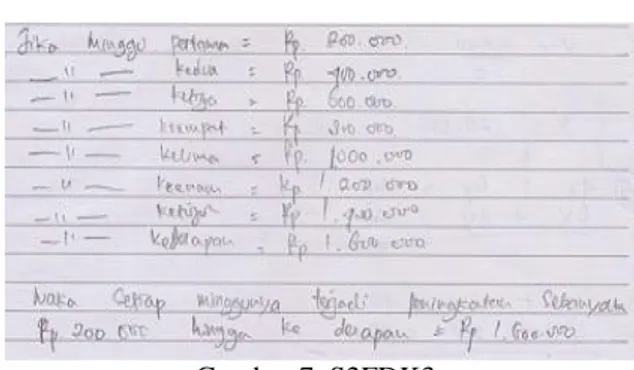 Jika Minggu pertama = Rp. 200.000.
—〃— kedua = Rp 400.000.
—〃— ketiga = Rp 600.000
—〃— keempat = Rp 800.000.
—〃— kelima = Rp. 1000.000
—〃— keenam = Rp 1.200.000
—〃— ketujuh = Rp 1.400.000
—〃— kedelapan = Rp 1.600.000
Maka Setiap minggunya terjadi peningkatan Sebanyak
Rp. 200.000 hingga ke delapan = Rp 1.600.000